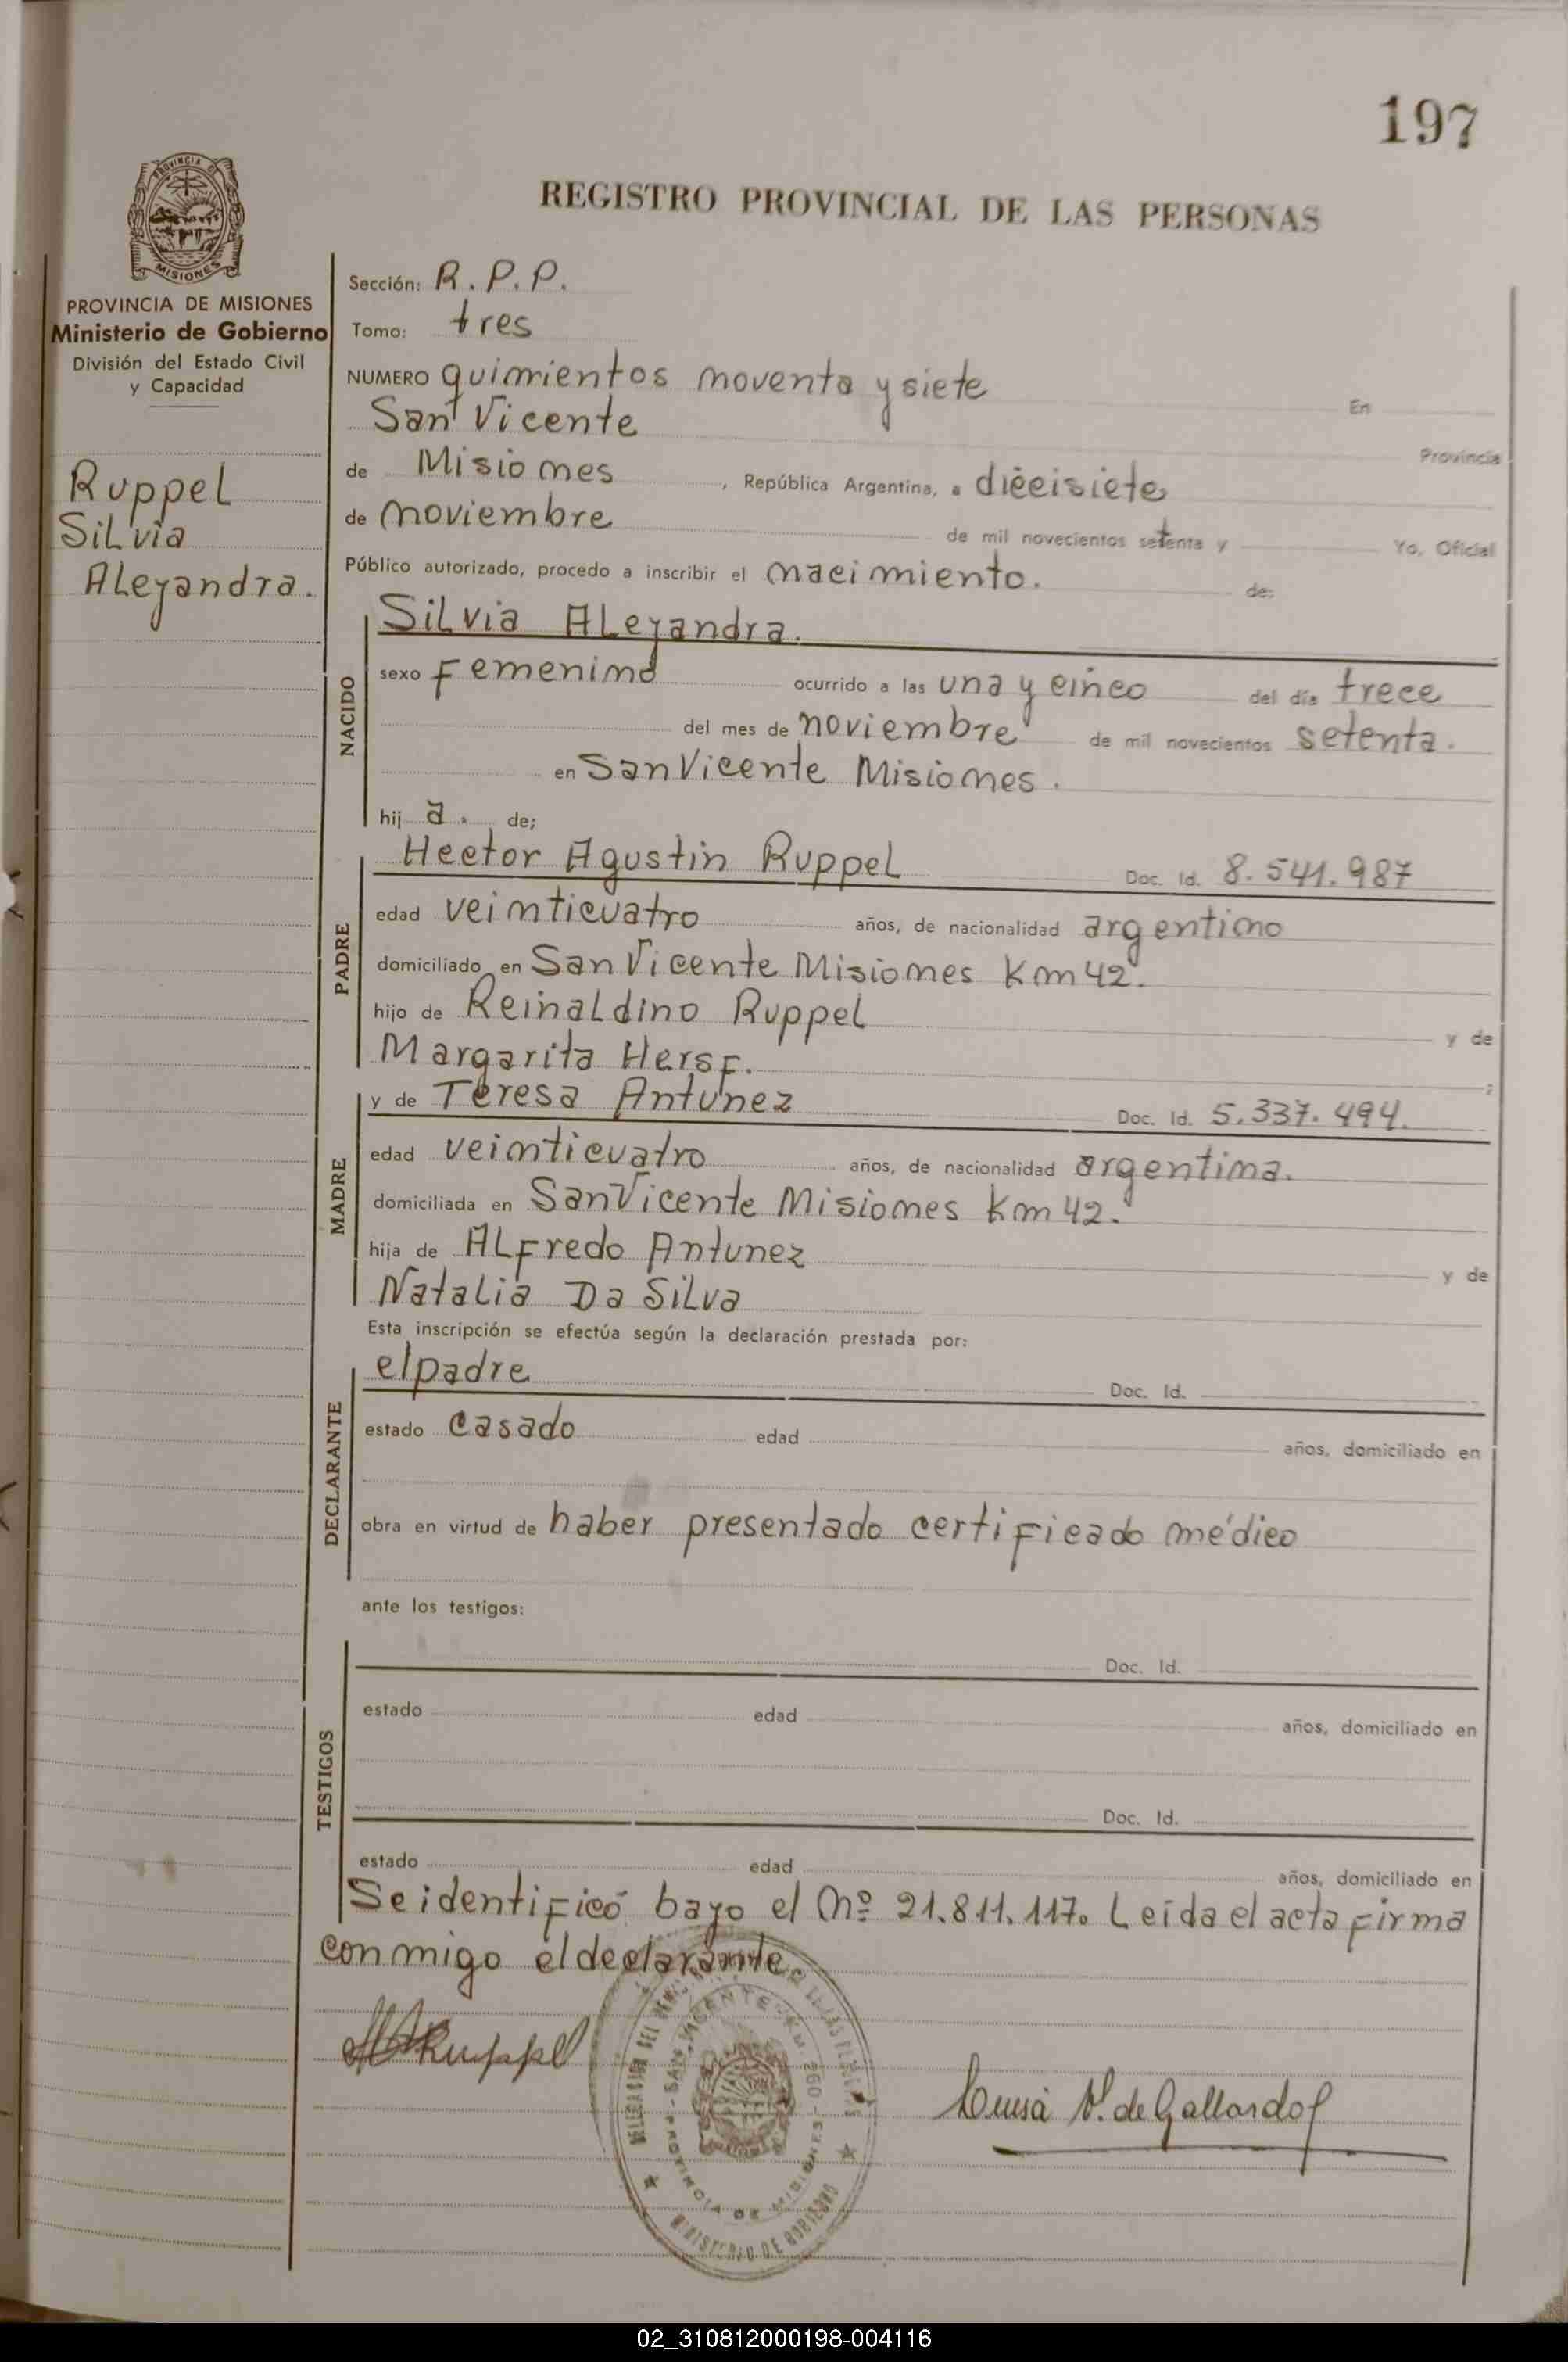 197
REGISTRO PROVINCIAL DE LAS PERSONAS
PROVINCIA DE MISIONES
Ministerio de Gobierno
División del Estado Civil
y Capacidad
Ruppel
Silvia
Aleyandra.
Sección: R.P.P.
Tomo: tres
NUMERO quinientos noventa y siete En
San Vicente Provincia
de Misiones, República Argentina, a diecisiete
de noviembre de mil novecientos setenta y Yo, Oficial
Público autorizado, procedo a inscribir el nacimiento. de:
NACIDO
Silvia Aleyandra.
sexo Femenino ocurrido a las una y cinco del día trece
del mes de noviembre de mil novecientos setenta.
en San Vicente Misiones.
hij a. de;
PADRE
Hector Agustin Ruppel Doc. Id. 8.541.987
edad veinticuatro años, de nacionalidad argentino
domiciliado en San Vicente Misiones Km 42.
hijo de Reinaldino Ruppel y de
Margarita Hersf. ;
MADRE
y de Teresa Antunez Doc. Id. 5.337.494.
edad veinticuatro años, de nacionalidad argentina.
domiciliada en San Vicente Misiones Km 42.
hija de Alfredo Antunez y de
Natalia Da Silva
Esta inscripción se efectúa según la declaración prestada por:
DECLARANTE
el padre Doc. Id.
estado casado edad años, domiciliado en
obra en virtud de haber presentado certificado médico
ante los testigos:
TESTIGOS
Doc. Id.
estado edad años, domiciliado en
Doc. Id.
estado edad años, domiciliado en
Se identificó bayo el Nº 21.811.117. Leída el acta firma
conmigo el declarante.
HARuppel
Luisa V. de Gallardo
SAN VICENTE KM 260 - PROVINCIA DE MISIONES
MINISTERIO DE GOBIERNO
02_310812000198-004116